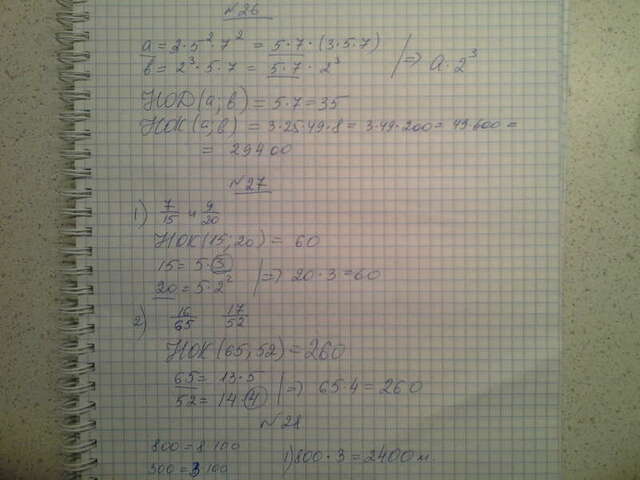 №26
a = 2·5²·7² = 5·7·(3·5·7)
b = 2³·5·7 = 5·7·2³ |=> a·2³
НОД(a;b) = 5·7=35
НОК(a;b) = 3·25·49·8 = 3·49·200 = 49·600 =
= 29400
№27
1) 7/15 и 9/20
НОК(15;20) = 60
15 = 5·3
20 = 5·2² |=> 20·3=60
2) 16/65 17/52
НОК(65;52) = 260
65 = 13·5
52 = 14·4 |=> 65·4 = 260
№28
800 = 8·100 1) 800·3 = 2400 м.
300 = 3·100